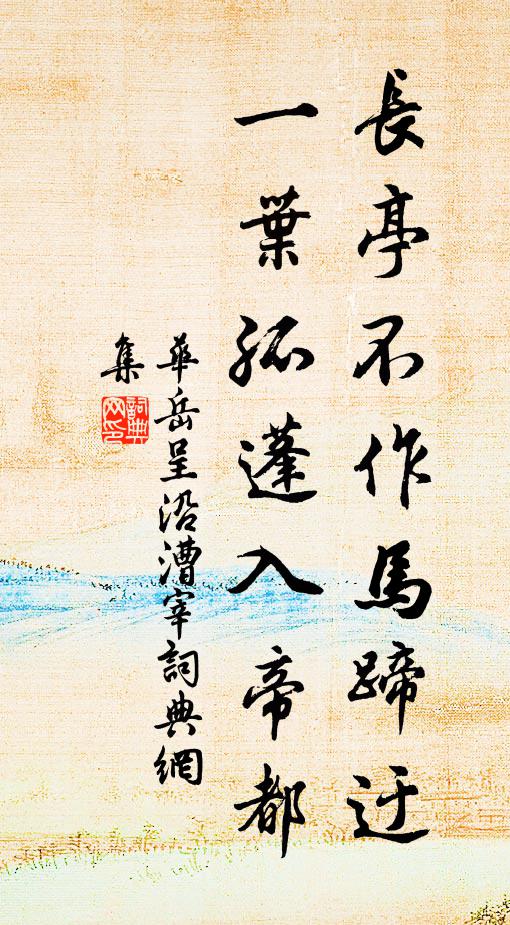 長亭不作馬蹄迂
一葉孤蓬入帝都
華岳呈沿漕宰詞典網
集
詞典
网印